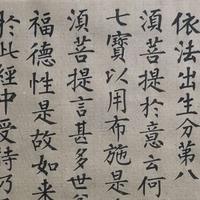 依法出生分第八
湏菩提於意云何
七寶以用布施是
湏菩提言甚多世
福德性是故如来
於此經中受持乃